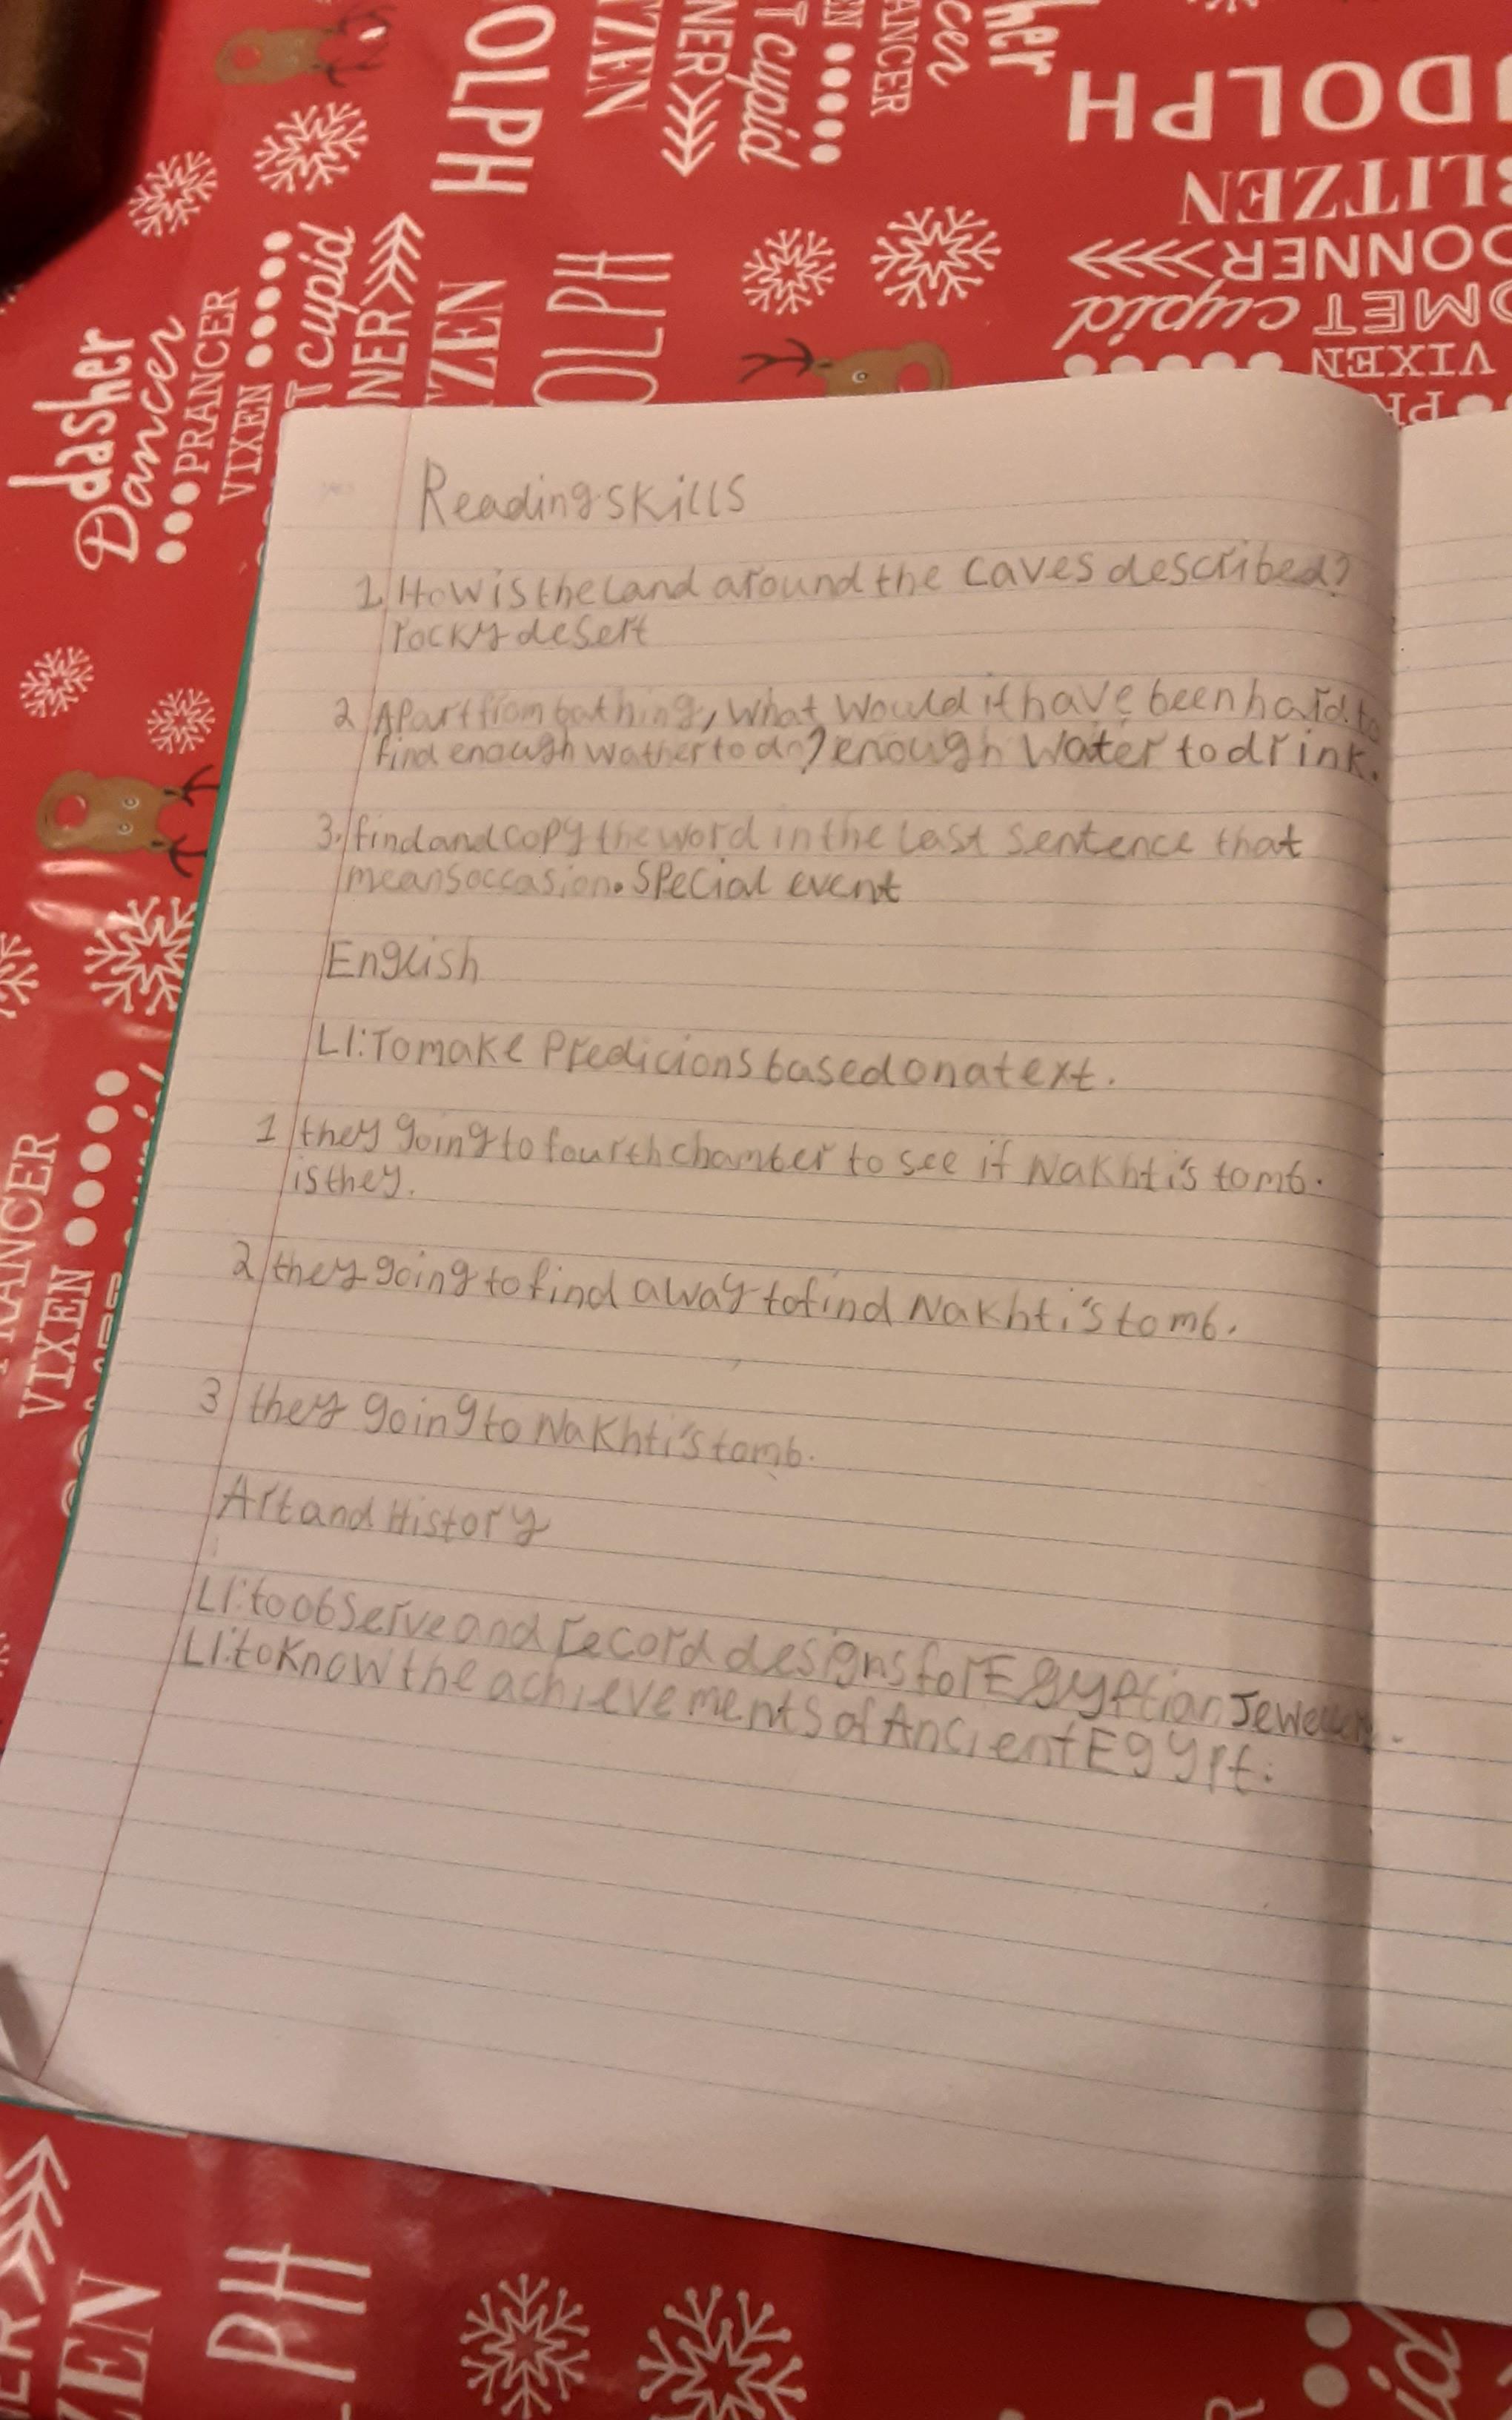 Reading skills
1 How is the land around the caves described?
rocky desert
2 Apart from bathing, what would it have been hard to
find enough wather to do? enough water to drink.
3. find and copy the word in the last sentence that
means occasion. special event
English
LI: To make Predicions based on a text.
1 they going to fourth chamber to see if Nakhti's tomb.
is they.
2 they going to find a way to find Nakhti's tomb.
3 they going to Nakhti's tomb.
Art and History
LI: to observe and record designs for Egyptian Jewellery.
LI: to know the achievements of Ancient Egypt.
dasher
Dancer
PRANCER
VIXEN
cupid
OLPH
BLITZEN
DONNER
OMET cupid
VIXEN